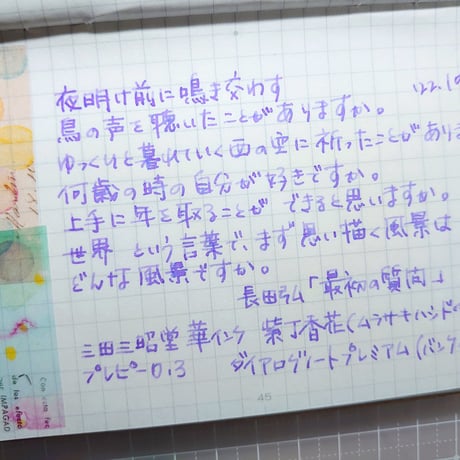 '22.10
夜明け前に鳴き交わす
鳥の声を聴いたことがありますか。
ゆっくりと暮れていく西の空に祈ったことがありま
何歳の時の自分が好きですか。
上手に年を取ることができると思いますか。
世界という言葉で、まず思い描く風景は
どんな風景ですか。
長田弘「最初の質問」
三田三昭堂 華インク 紫丁香花(ムラサキハシド
プレピー0.3 ダイアログノートプレミアム(バンク
45
IMPAGAD